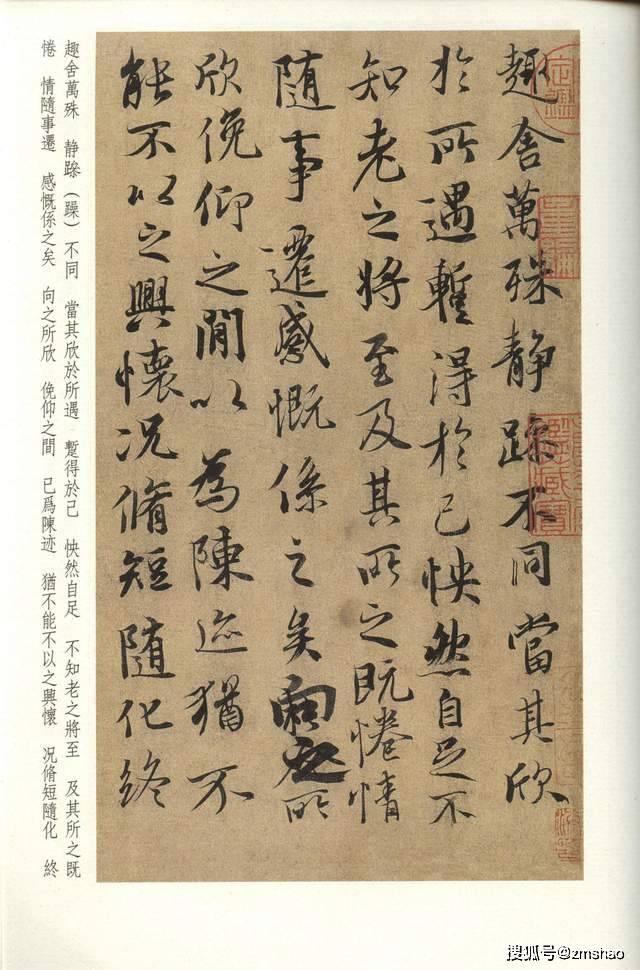 趣舍萬殊静躁不同當其欣
於所遇蹔得於己怏然自足不
知老之将至及其所之既惓情
随事遷感慨係之矣向之所
欣俛仰之閒以為陳迹猶不
能不以之興懷况脩短随化終
趣舍萬殊 静跺（躁）不同 當其欣於所遇 蹔得於己 怏然自足 不知老之將至 及其所之既
惓 情隨事遷 感慨係之矣 向之所欣 俛仰之間 已爲陳迹 猶不能不以之興懷 况脩短隨化 終
搜狐号@zmshao